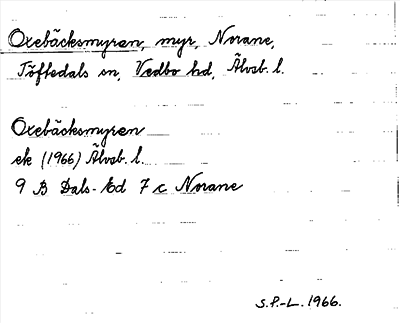 Oxebäcksmyren, myr, Norane,
Töftedals sn, Vedbo hd, Älvsb. l.
Oxebäcksmyren
ek (1966) Älvsb. l.
9 B Dals-Ed 7 c Norane
S.P.-L. 1966.